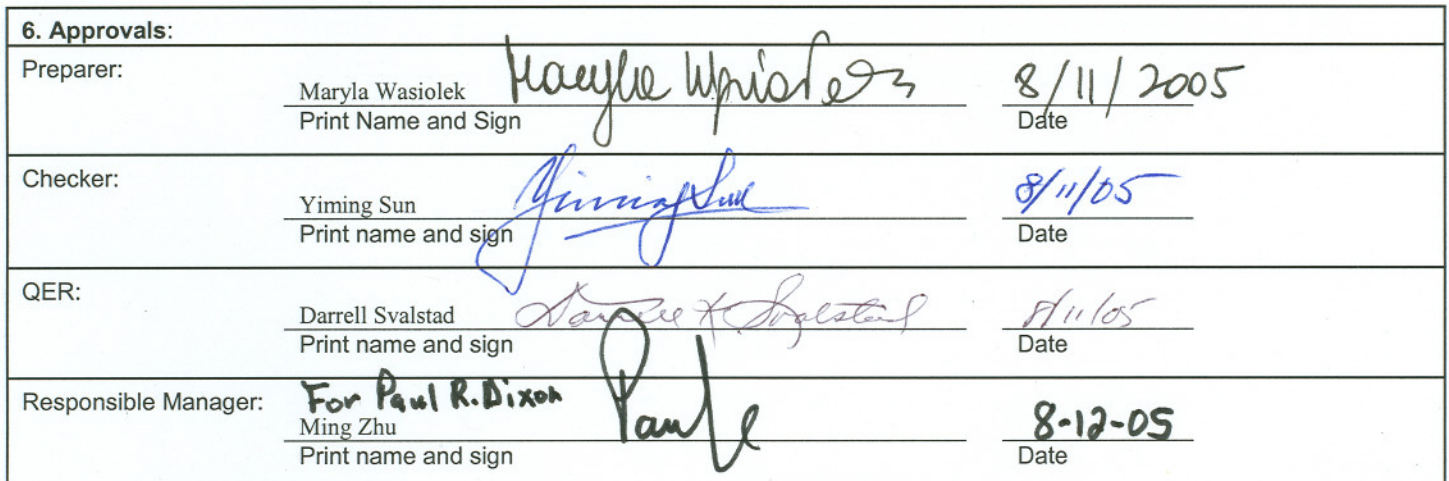 6. Approvals:
Preparer:
Maryla Wasiolek Maryla Wasiolek 8/11/2005
Print Name and Sign Date
Checker:
Yiming Sun Yiming Sun 8/11/05
Print name and sign Date
QER:
Darrell Svalstad Darrell K Svalstad 8/11/05
Print name and sign Date
Responsible Manager:
For Paul R. Dixon
Ming Zhu 8-12-05
Print name and sign Date